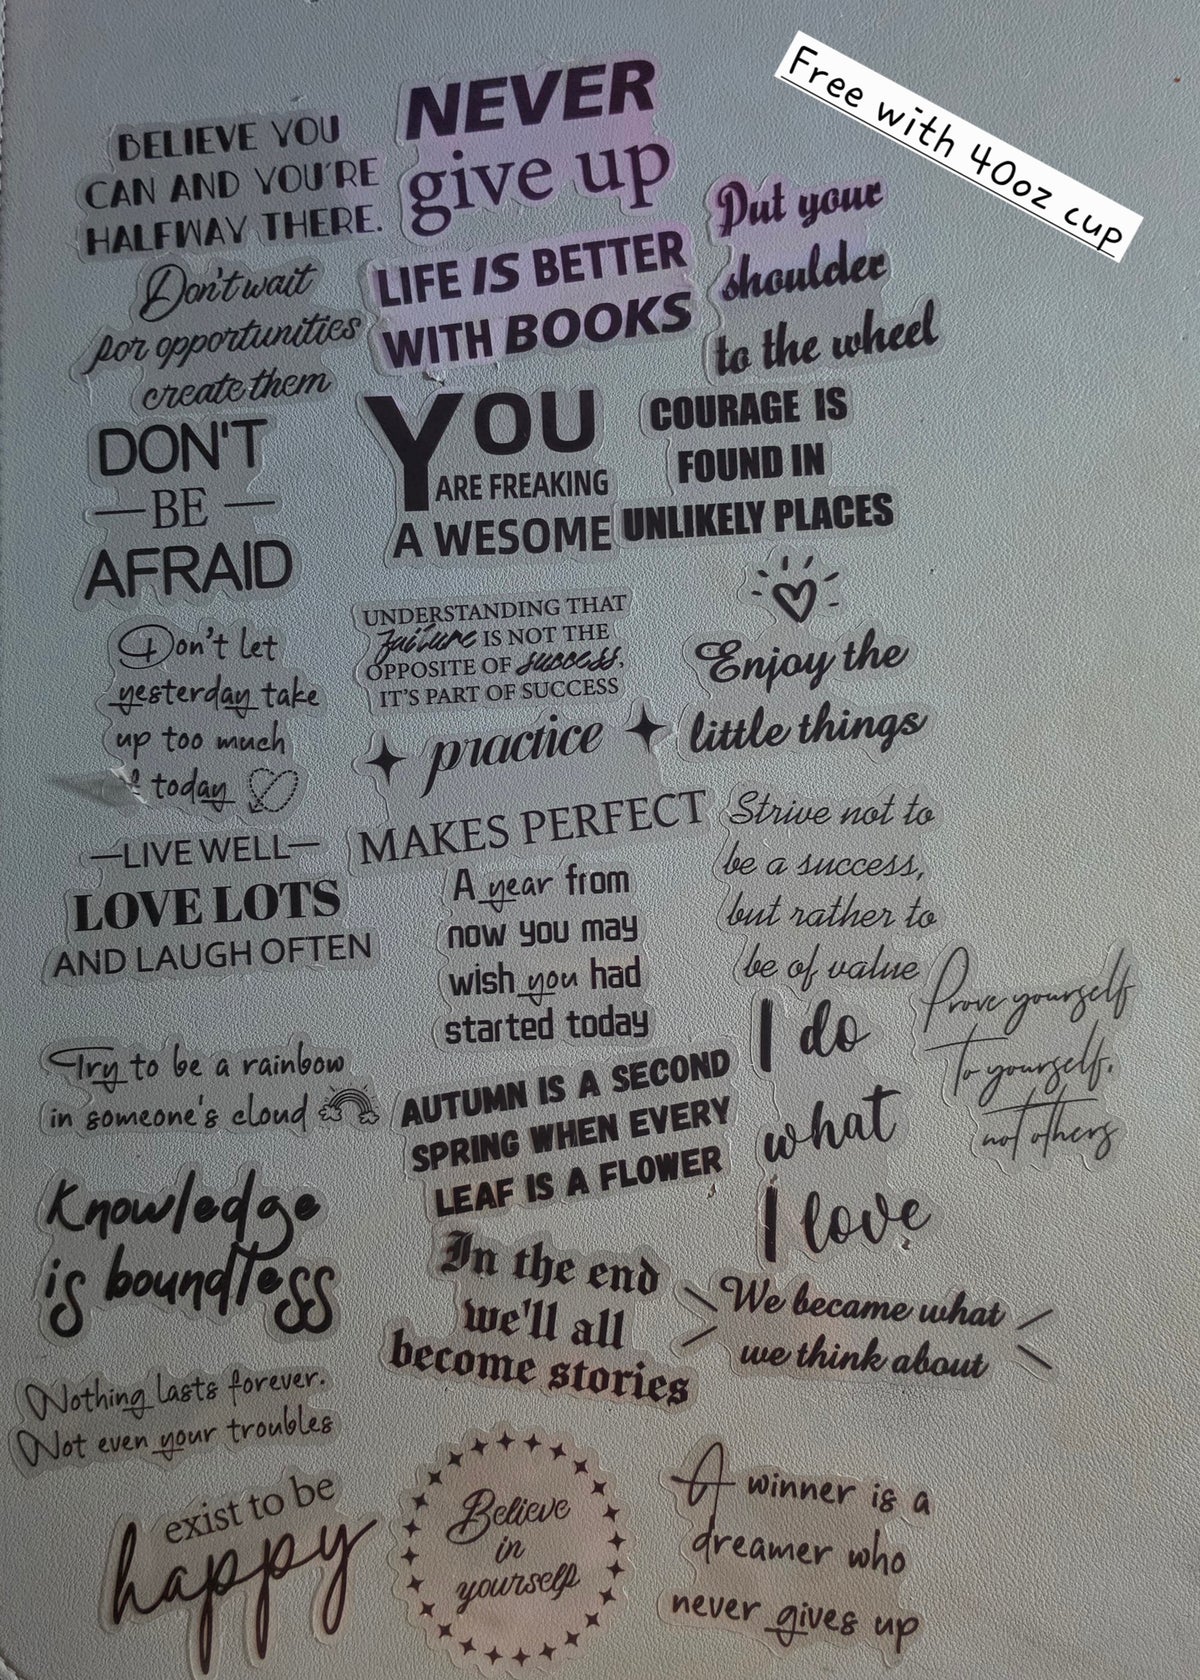 Free with 40oz cup
BELIEVE YOU
CAN AND YOU'RE
HALFWAY THERE.
Don't wait
for opportunities
create them
DON'T
BE
AFRAID
Don't let
yesterday take
up too much
today
LIVE WELL
LOVE LOTS
AND LAUGH OFTEN
Try to be a rainbow
in someone's cloud
Knowledge
is boundless
Nothing lasts forever.
Not even your troubles
exist to be
happy
NEVER
give up
LIFE IS BETTER
WITH BOOKS
YOU
ARE FREAKING
A WESOME
UNDERSTANDING THAT
failure IS NOT THE
OPPOSITE OF success,
IT'S PART OF SUCCESS
practice
MAKES PERFECT
A year from
now you may
wish you had
started today
AUTUMN IS A SECOND
SPRING WHEN EVERY
LEAF IS A FLOWER
In the end
we'll all
become stories
Believe
in
yourself
Put your
shoulder
to the wheel
COURAGE IS
FOUND IN
UNLIKELY PLACES
Enjoy the
little things
Strive not to
be a success,
but rather to
be of value
I do
what
I love
Prove yourself
To yourself,
not others
We became what
we think about
A winner is a
dreamer who
never gives up